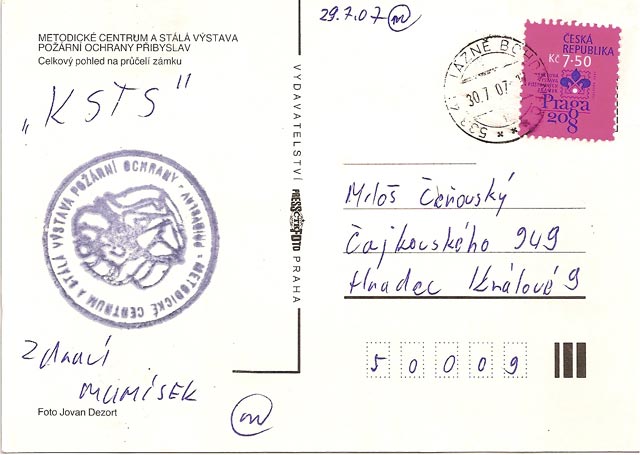 METODICKÉ CENTRUM A STÁLÁ VÝSTAVA
POŽÁRNÍ OCHRANY PŘIBYSLAV
Celkový pohled na průčelí zámku
„KSTS"
METODICKÉ CENTRUM A STÁLÁ VÝSTAVA POŽÁRNÍ OCHRANY
Zdraví
MUMÍSEK
Foto Jovan Dezort
VYDAVATELSTVÍ
PRESSFOTO
PRAHA
29.7.07
LÁZNĚ
30.7.07
533 41
ČESKÁ
REPUBLIKA
Kč 7.50
Praga
2008
Miloš Čeňovský
Čajkovského 949
Hradec Králové 9
50009